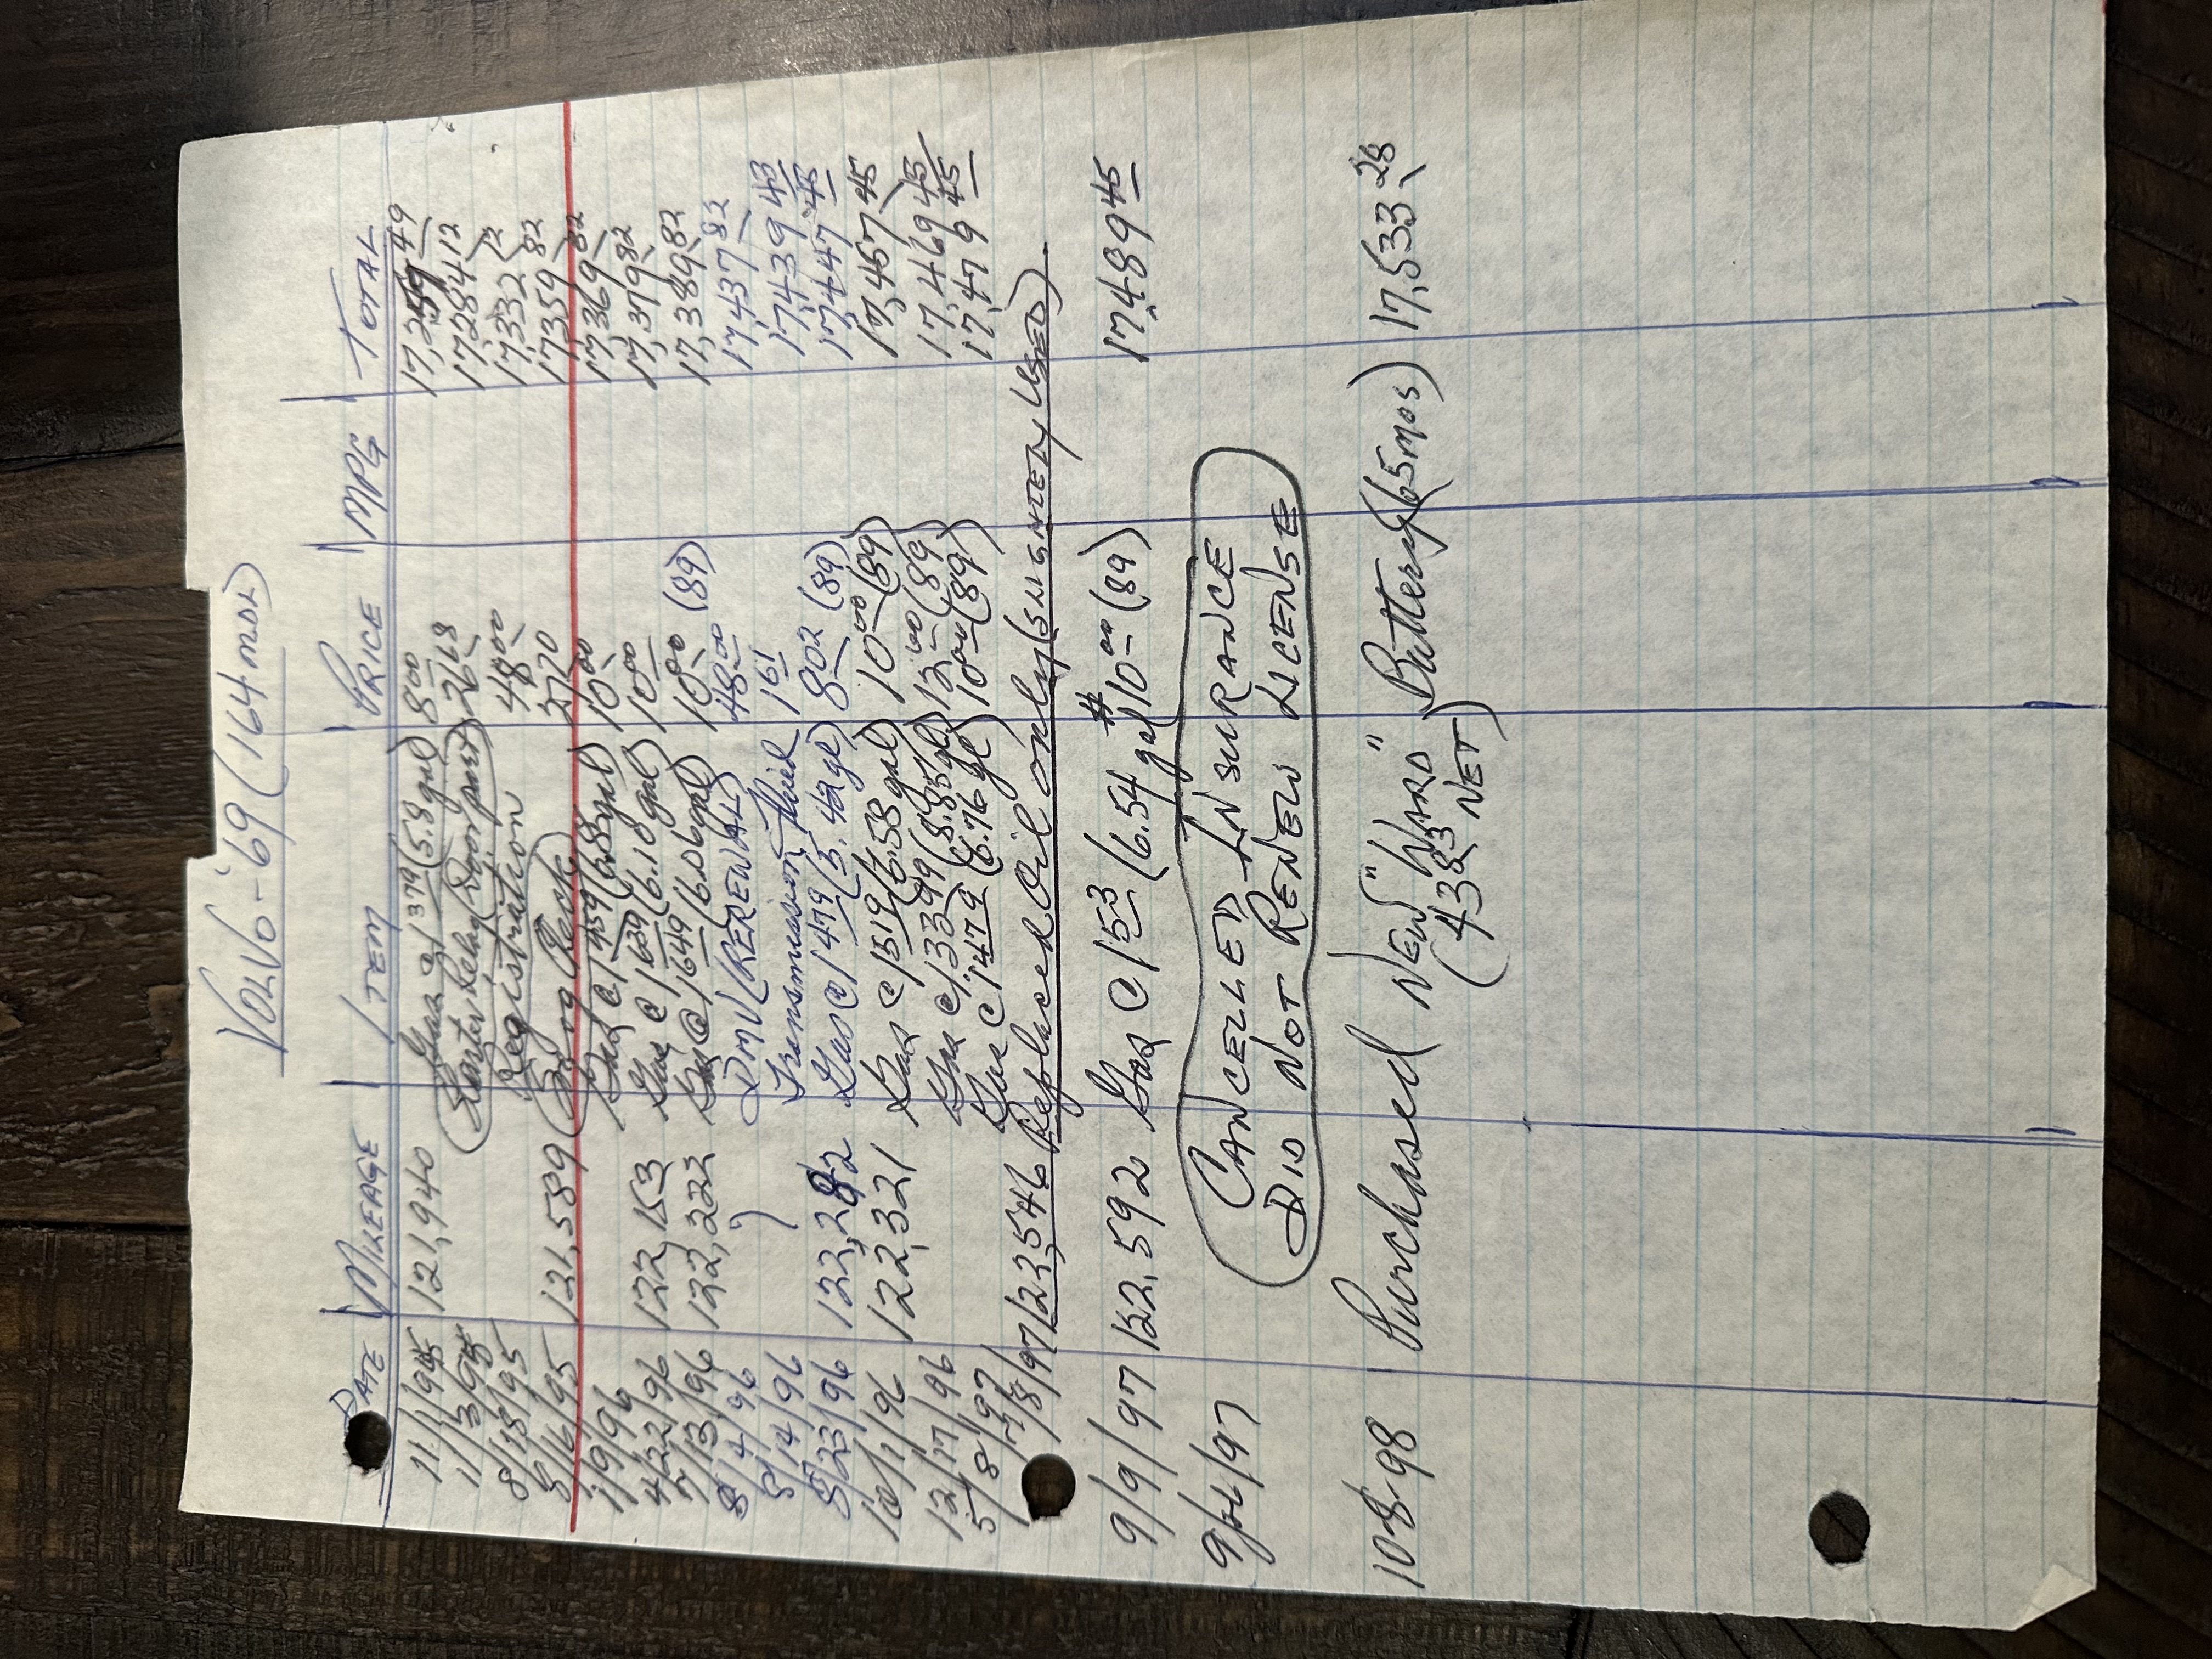 VOLVO - '69 (164 MDL)
DATE MILEAGE ITEM PRICE MPG TOTAL
11/1/94 121,940 Gas @ 1 37 9 (5.8 gal) 8 00 17,2 49
11/3/94 (Starter Relay (Door part) 26 63 17,284 12
8/15/95 Registration 48 00 17,332 12
8/16/95 121,589 (Smog Check) 27 70 17,359 82
1/9/96 Gas @ 1 45 9 (6.8 gal) 10 00 17,369 82
4/22/96 122,153 Gas @ 1 63 9 (6.10 gal) 10 00 17,379 82
7/13/96 122,222 Gas @ 1 64 9 (6.06 gal) 10 00 (89) 17,389 82
8/4/96 " DMV (RENEWAL) 48 00 17,437 82
8/14/96 Transmission fluid 1 61 17,439 43
8/23/96 122,282 Gas @ 1 47 9 (3.42 gl) 8 02 (89) 17,447 45
10/1/96 122,321 Gas @ 1 51 9 (6.58 gal) 10 00 (89) 17,457 45
12/17/96 Gas @ 1.33 9/9 (8.85 gl) 12 00 (89) 17,469 45
5/8/97 Gas @ 1 47 9 (6.76 gl) 10 00 (89) 17,479 45
7/8/97 122,546 Replaced Oil only (SLIGHTLY USED)
9/9/97 122,592 Gas @ 1 53 (6.54 gal) # 10 00 (89) 17,489 45
9/26/97 CANCELLED INSURANCE
DID NOT RENEW LICENSE
10-8-98 Purchased NEW "WARD" Battery (65 mos) 17,533 28
(43 83 NET)